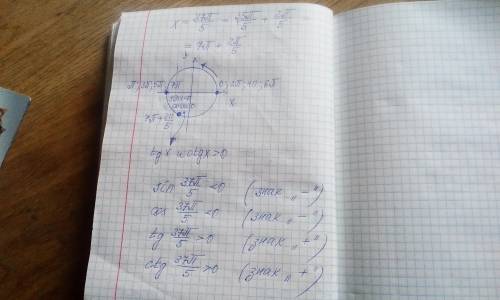 x = 37π/5 = 35π/5 + 2π/5
= 7π + 2π/5
y
π, 3π, 5π, 7π
0, 2π, 4π, 6π
x
7π + 2π/5
tg x и ctg x > 0
sin 37π/5 < 0 (знак „ − ")
cos 37π/5 < 0 (знак „ − ")
tg 37π/5 > 0 (знак „ + ")
ctg 37π/5 > 0 (знак „ + ")